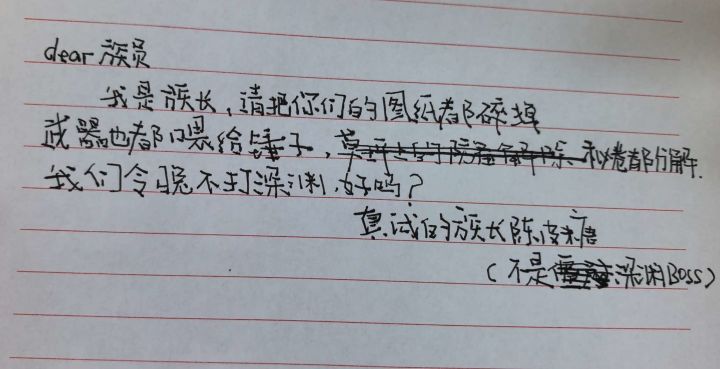 dear 族员
我是族长，请把你们的图纸都碎掉
武器也都喂给锤子，私卷都分解.
我们今晚不打深渊，好吗？
真诚的族长陈皮糖
（不是深渊Boss）